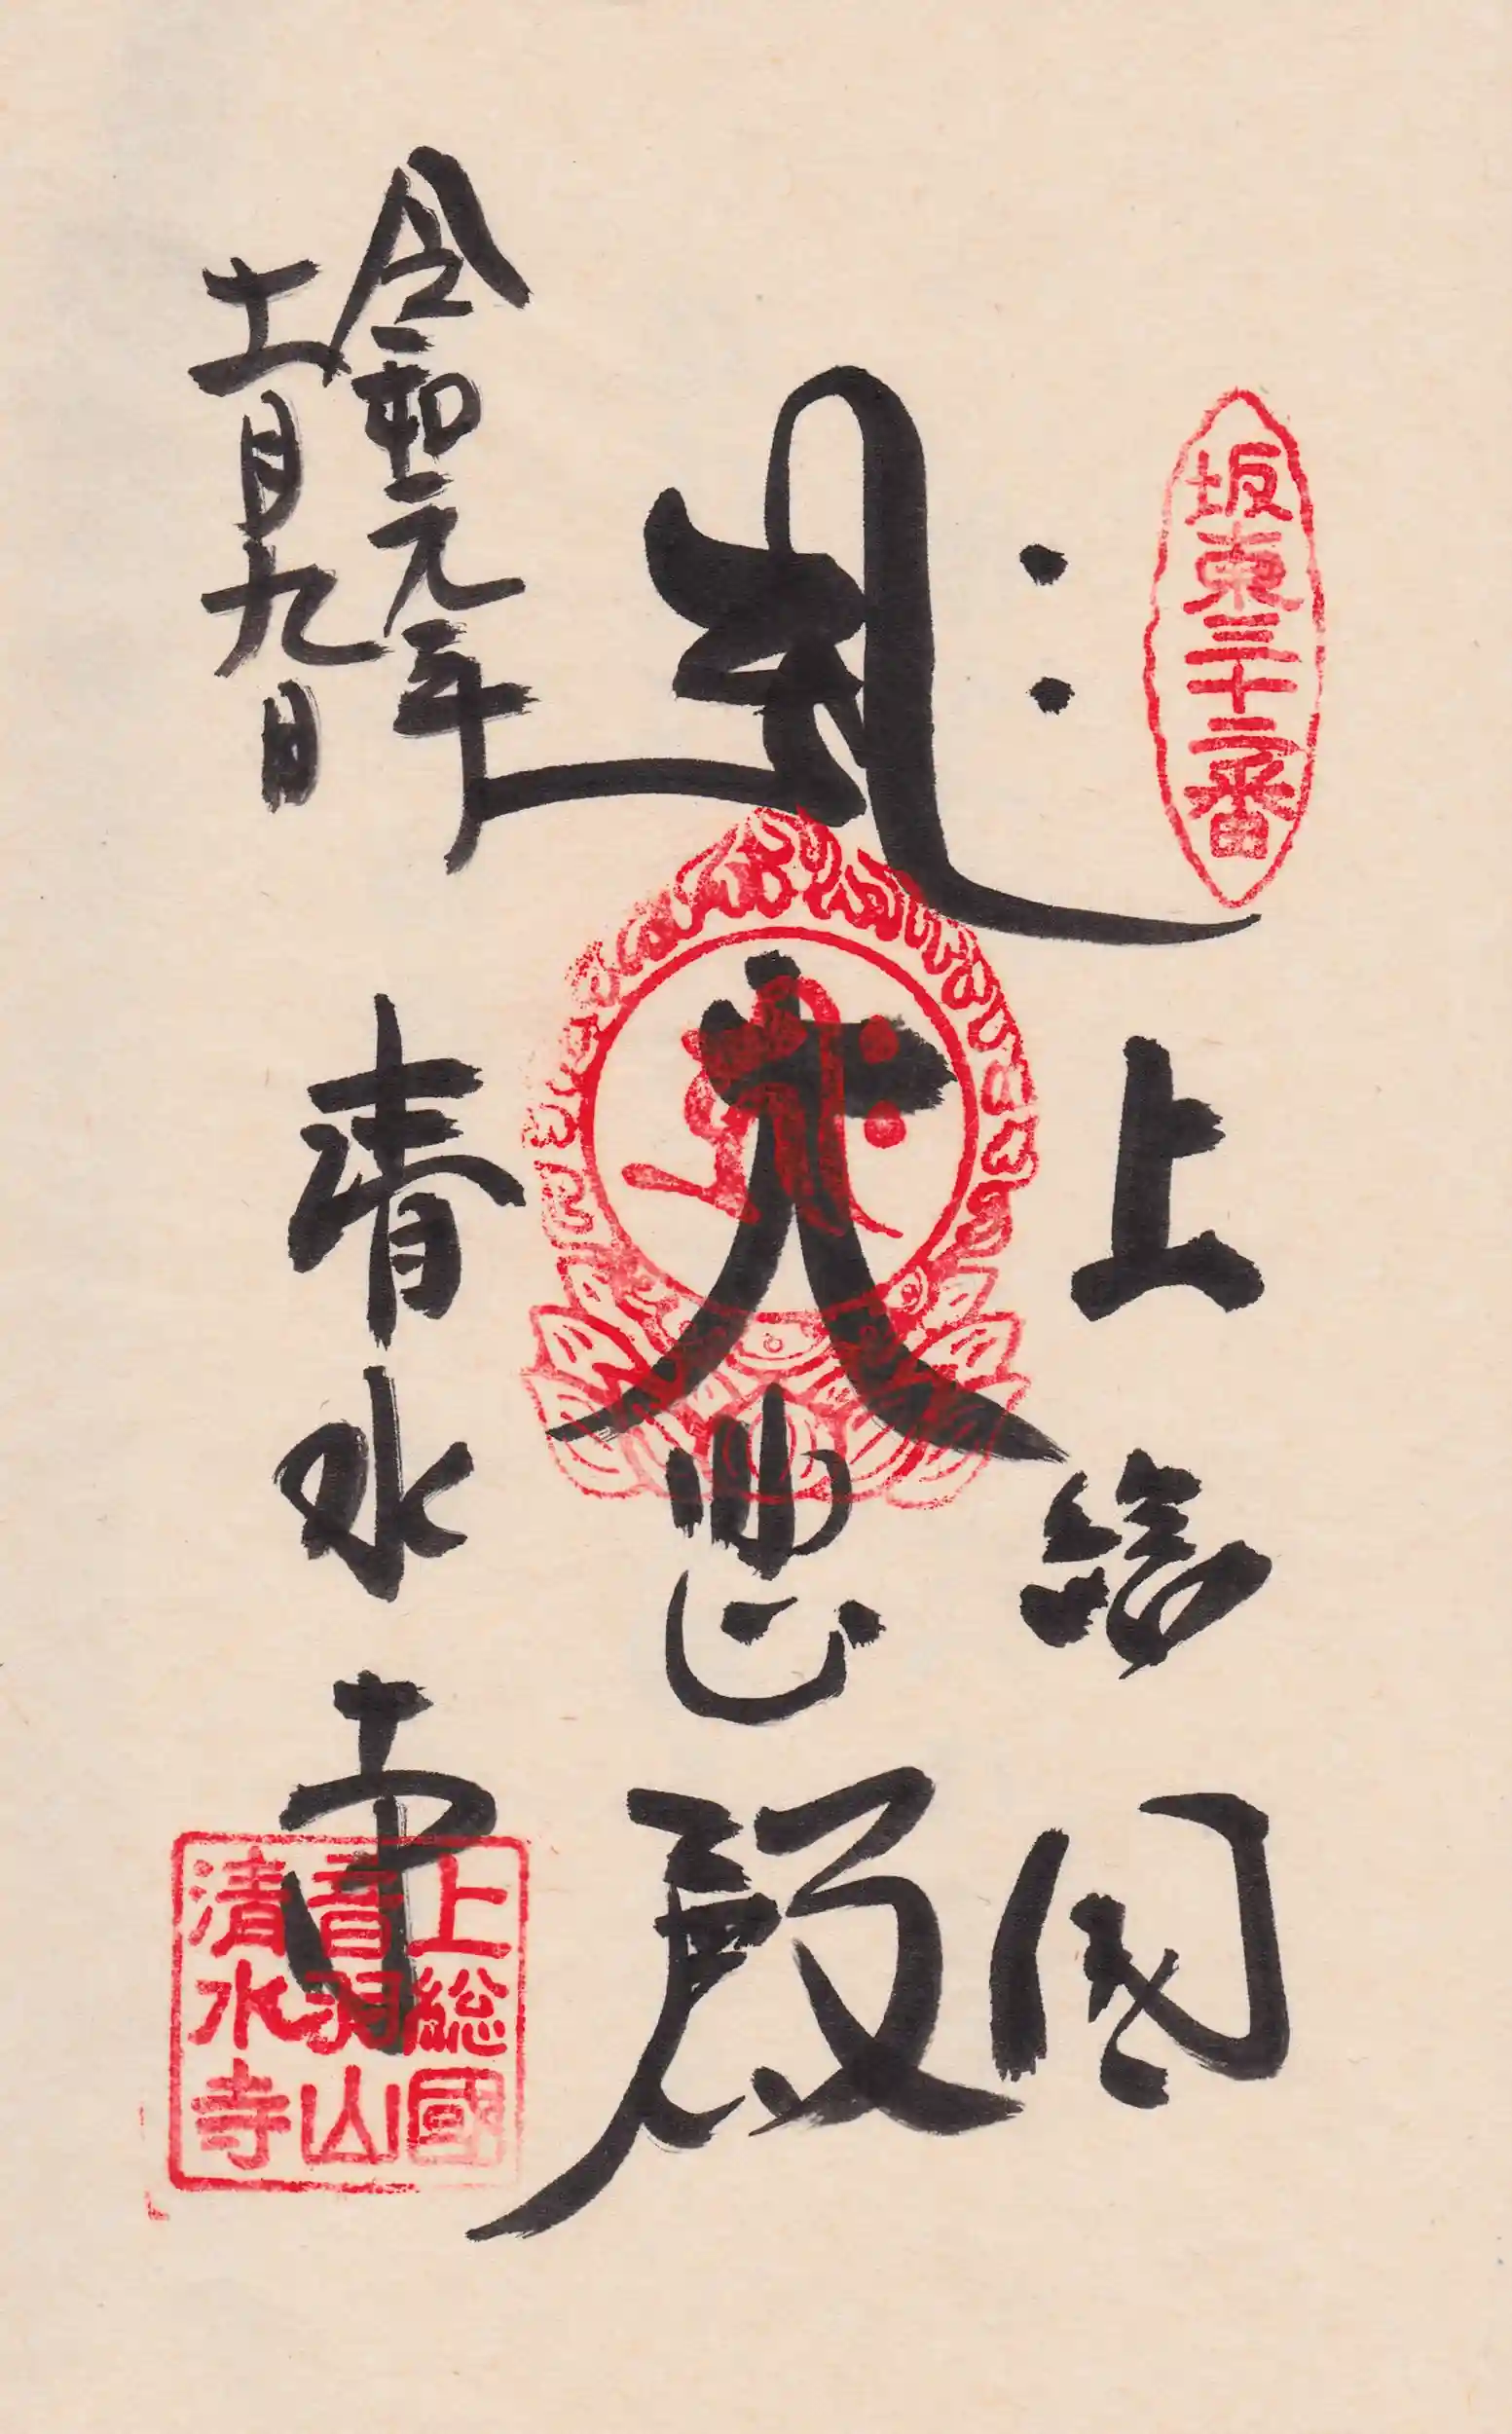 坂東三十二番
上総国
ह्रीः
大悲殿
令和元年
十一月九日
清水寺
上総國
音羽山
清水寺